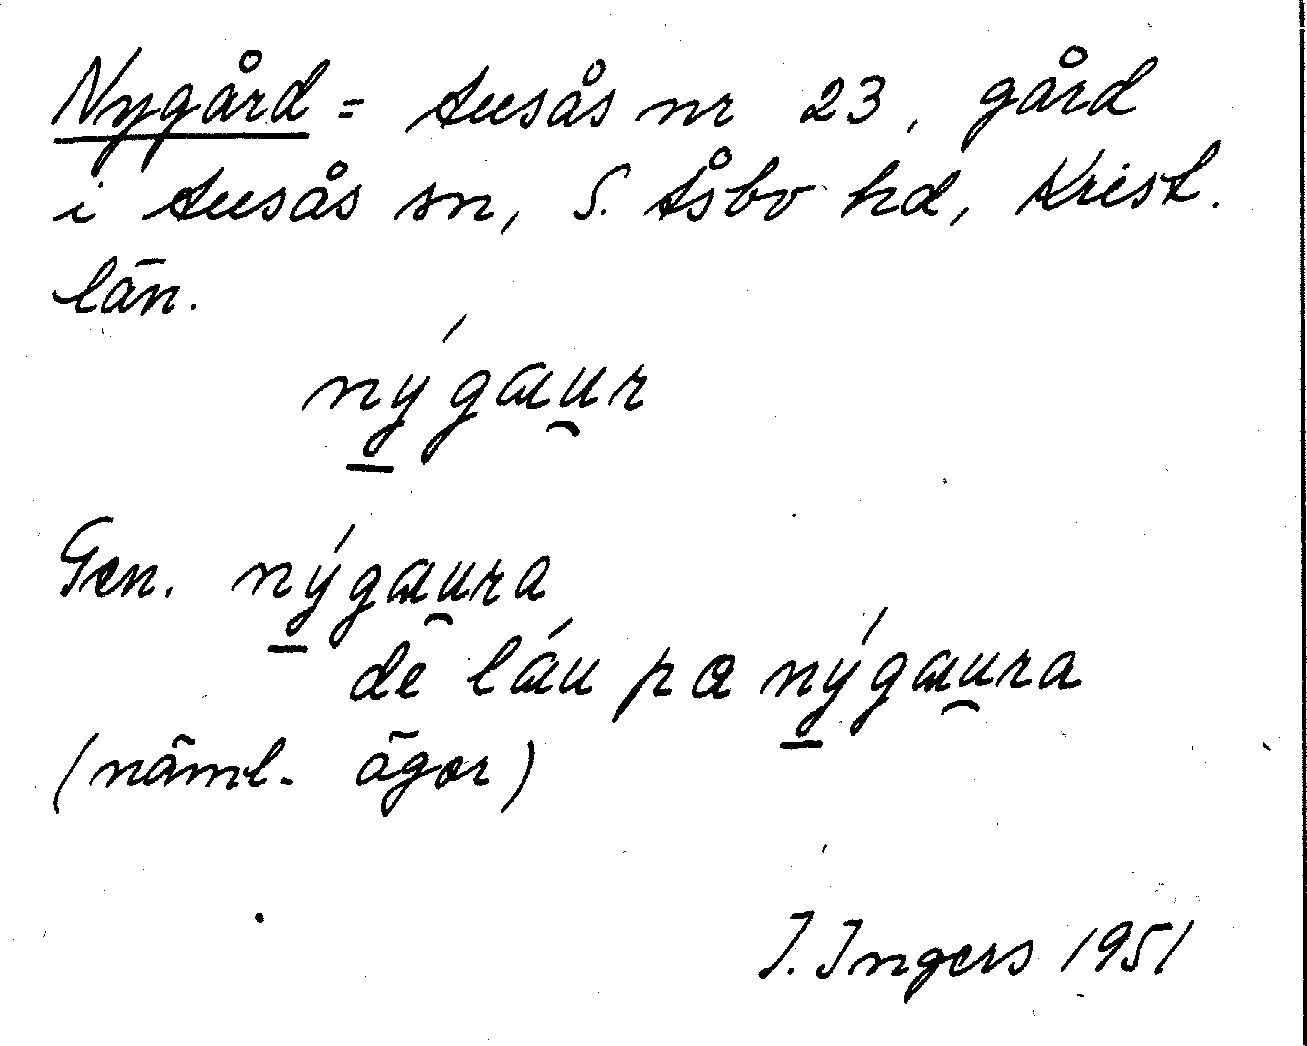 Nygård = Ausås nr 23, gård
i Ausås sn, S. Åsbo hd, Krist.
län.
nýgau̯r
Gen. nýgau̯ra
de láu pa nýgau̯ra
(näml. ägor)
I. Ingers 1951